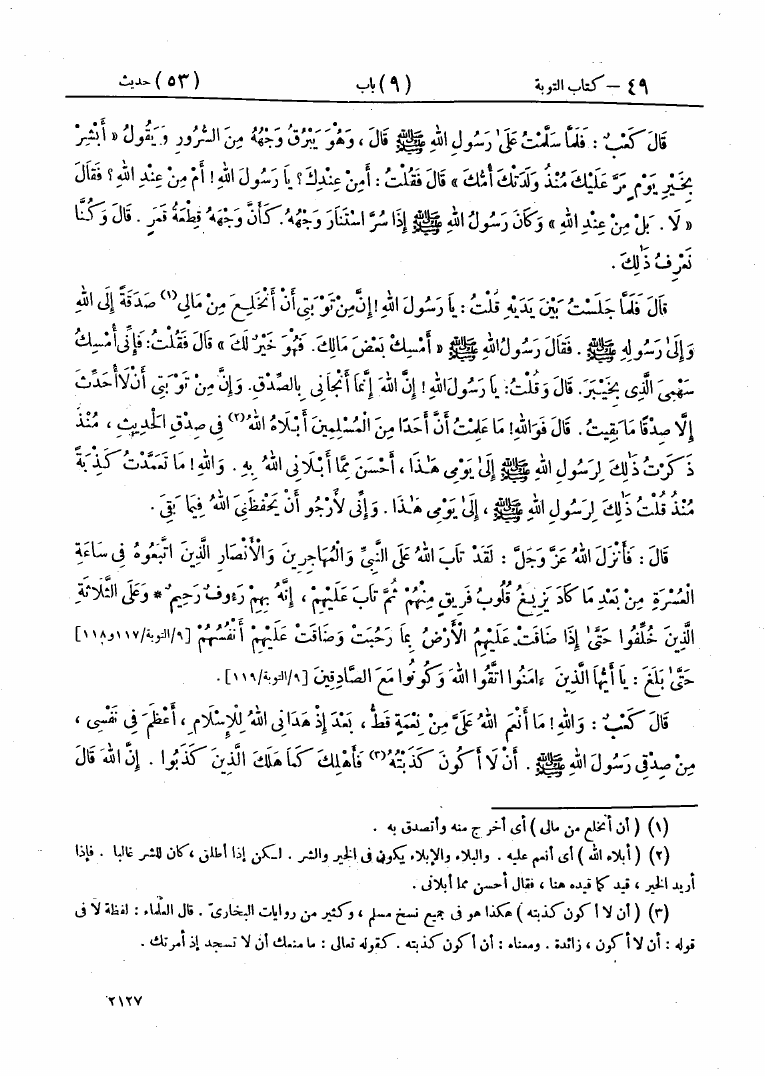 ٤٩ – كتاب التوبة (٩) باب (٥٣) حديث
قَالَ كَعْبٌ : فَلَمَّا سَلَّمْتُ عَلَىٰ رَسُولِ اللهِ ﷺ قَالَ ، وَهُوَ يَبْرُقُ وَجْهُهُ مِنَ السُّرُورِ وَيَقُولُ « أَبْشِرْ
بِخَيْرِ يَوْمٍ مَرَّ عَلَيْكَ مُنْذُ وَلَدَتْكَ أُمُّكَ » قَالَ فَقُلْتُ : أَمِنْ عِنْدِكَ ؟ يَا رَسُولَ اللهِ ! أَمْ مِنْ عِنْدِ اللهِ ؟ فَقَالَ
« لَا . بَلْ مِنْ عِنْدِ اللهِ » وَكَانَ رَسُولُ اللهِ ﷺ إِذَا سُرَّ اسْتَنَارَ وَجْهُهُ. كَأَنَّ وَجْهَهُ قِطْعَةُ قَمَرٍ . قَالَ وَكُنَّا
نَعْرِفُ ذَٰلِكَ .
قَالَ فَلَمَّا جَلَسْتُ بَيْنَ يَدَيْهِ قُلْتُ : يَا رَسُولَ اللهِ ! إِنَّ مِنْ تَوْبَتِي أَنْ أَنْخَلِعَ مِنْ مَالِي(١) صَدَقَةً إِلَى اللهِ
وَإِلَىٰ رَسُولِهِ ﷺ . فَقَالَ رَسُولُ اللهِ ﷺ « أَمْسِكْ بَعْضَ مَالِكَ. فَهُوَ خَيْرٌ لَكَ » قَالَ فَقُلْتُ: فَإِنِّي أُمْسِكُ
سَهْمِيَ الَّذِي بِخَيْبَرَ. قَالَ وَقُلْتُ: يَا رَسُولَ اللهِ ! إِنَّ اللهَ إِنَّمَا أَنْجَانِي بِالصِّدْقِ. وَإِنَّ مِنْ تَوْبَتِي أَنْ لَا أُحَدِّثَ
إِلَّا صِدْقًا مَا بَقِيتُ . قَالَ فَوَاللهِ! مَا عَلِمْتُ أَنَّ أَحَدًا مِنَ الْمُسْلِمِينَ أَبْلَاهُ اللهُ(٢) فِي صِدْقِ الْحَدِيثِ ، مُنْذُ
ذَكَرْتُ ذَٰلِكَ لِرَسُولِ اللهِ ﷺ إِلَىٰ يَوْمِي هَٰذَا ، أَحْسَنَ مِمَّا أَبْلَانِي اللهُ بِهِ . وَاللهِ! مَا تَعَمَّدْتُ كَذِبَةً
مُنْذُ قُلْتُ ذَٰلِكَ لِرَسُولِ اللهِ ﷺ ، إِلَىٰ يَوْمِي هَٰذَا . وَإِنِّي لَأَرْجُو أَنْ يَحْفَظَنِيَ اللهُ فِيمَا بَقِيَ .
قَالَ : فَأَنْزَلَ اللهُ عَزَّ وَجَلَّ : لَقَدْ تَابَ اللهُ عَلَى النَّبِيِّ وَالْمُهَاجِرِينَ وَالْأَنْصَارِ الَّذِينَ اتَّبَعُوهُ فِي سَاعَةِ
الْعُسْرَةِ مِنْ بَعْدِ مَا كَادَ يَزِيغُ قُلُوبُ فَرِيقٍ مِنْهُمْ ثُمَّ تَابَ عَلَيْهِمْ ، إِنَّهُ بِهِمْ رَءُوفٌ رَحِيمٌ * وَعَلَى الثَّلَاثَةِ
الَّذِينَ خُلِّفُوا حَتَّىٰ إِذَا ضَاقَتْ عَلَيْهِمُ الْأَرْضُ بِمَا رَحُبَتْ وَضَاقَتْ عَلَيْهِمْ أَنْفُسُهُمْ [٩/التوبة/١١٧و١١٨]
حَتَّىٰ بَلَغَ : يَا أَيُّهَا الَّذِينَ ءَامَنُوا اتَّقُوا اللهَ وَكُونُوا مَعَ الصَّادِقِينَ [٩/التوبة/١١٩] .
قَالَ كَعْبٌ : وَاللهِ! مَا أَنْعَمَ اللهُ عَلَيَّ مِنْ نِعْمَةٍ قَطُّ ، بَعْدَ إِذْ هَدَانِي اللهُ لِلْإِسْلَامِ ، أَعْظَمَ فِي نَفْسِي ،
مِنْ صِدْقِي رَسُولَ اللهِ ﷺ . أَنْ لَا أَكُونَ كَذَبْتُهُ(٣) فَأَهْلِكَ كَمَا هَلَكَ الَّذِينَ كَذَبُوا . إِنَّ اللهَ قَالَ
(١) ( أن أنخلع من مالى ) أى أخرج منه وأتصدق به .
(٢) ( أبلاه الله ) أى أنعم عليه . والبلاء والإبلاء يكون فى الخير والشر . لكن إذا أطلق ، كان للشر غالبا . فإذا
أريد الخير ، قيد كما قيده هنا ، فقال أحسن مما أبلانى .
(٣) ( أن لا أكون كذبته ) هكذا هو فى جميع نسخ مسلم ، وكثير من روايات البخارىّ . قال العلماء : لفظة لا فى
قوله : أن لا أكون ، زائدة . ومعناه : أن أكون كذبته . كقوله تعالى : ما منعك أن لا تسجد إذ أمرتك .
٢١٢٧